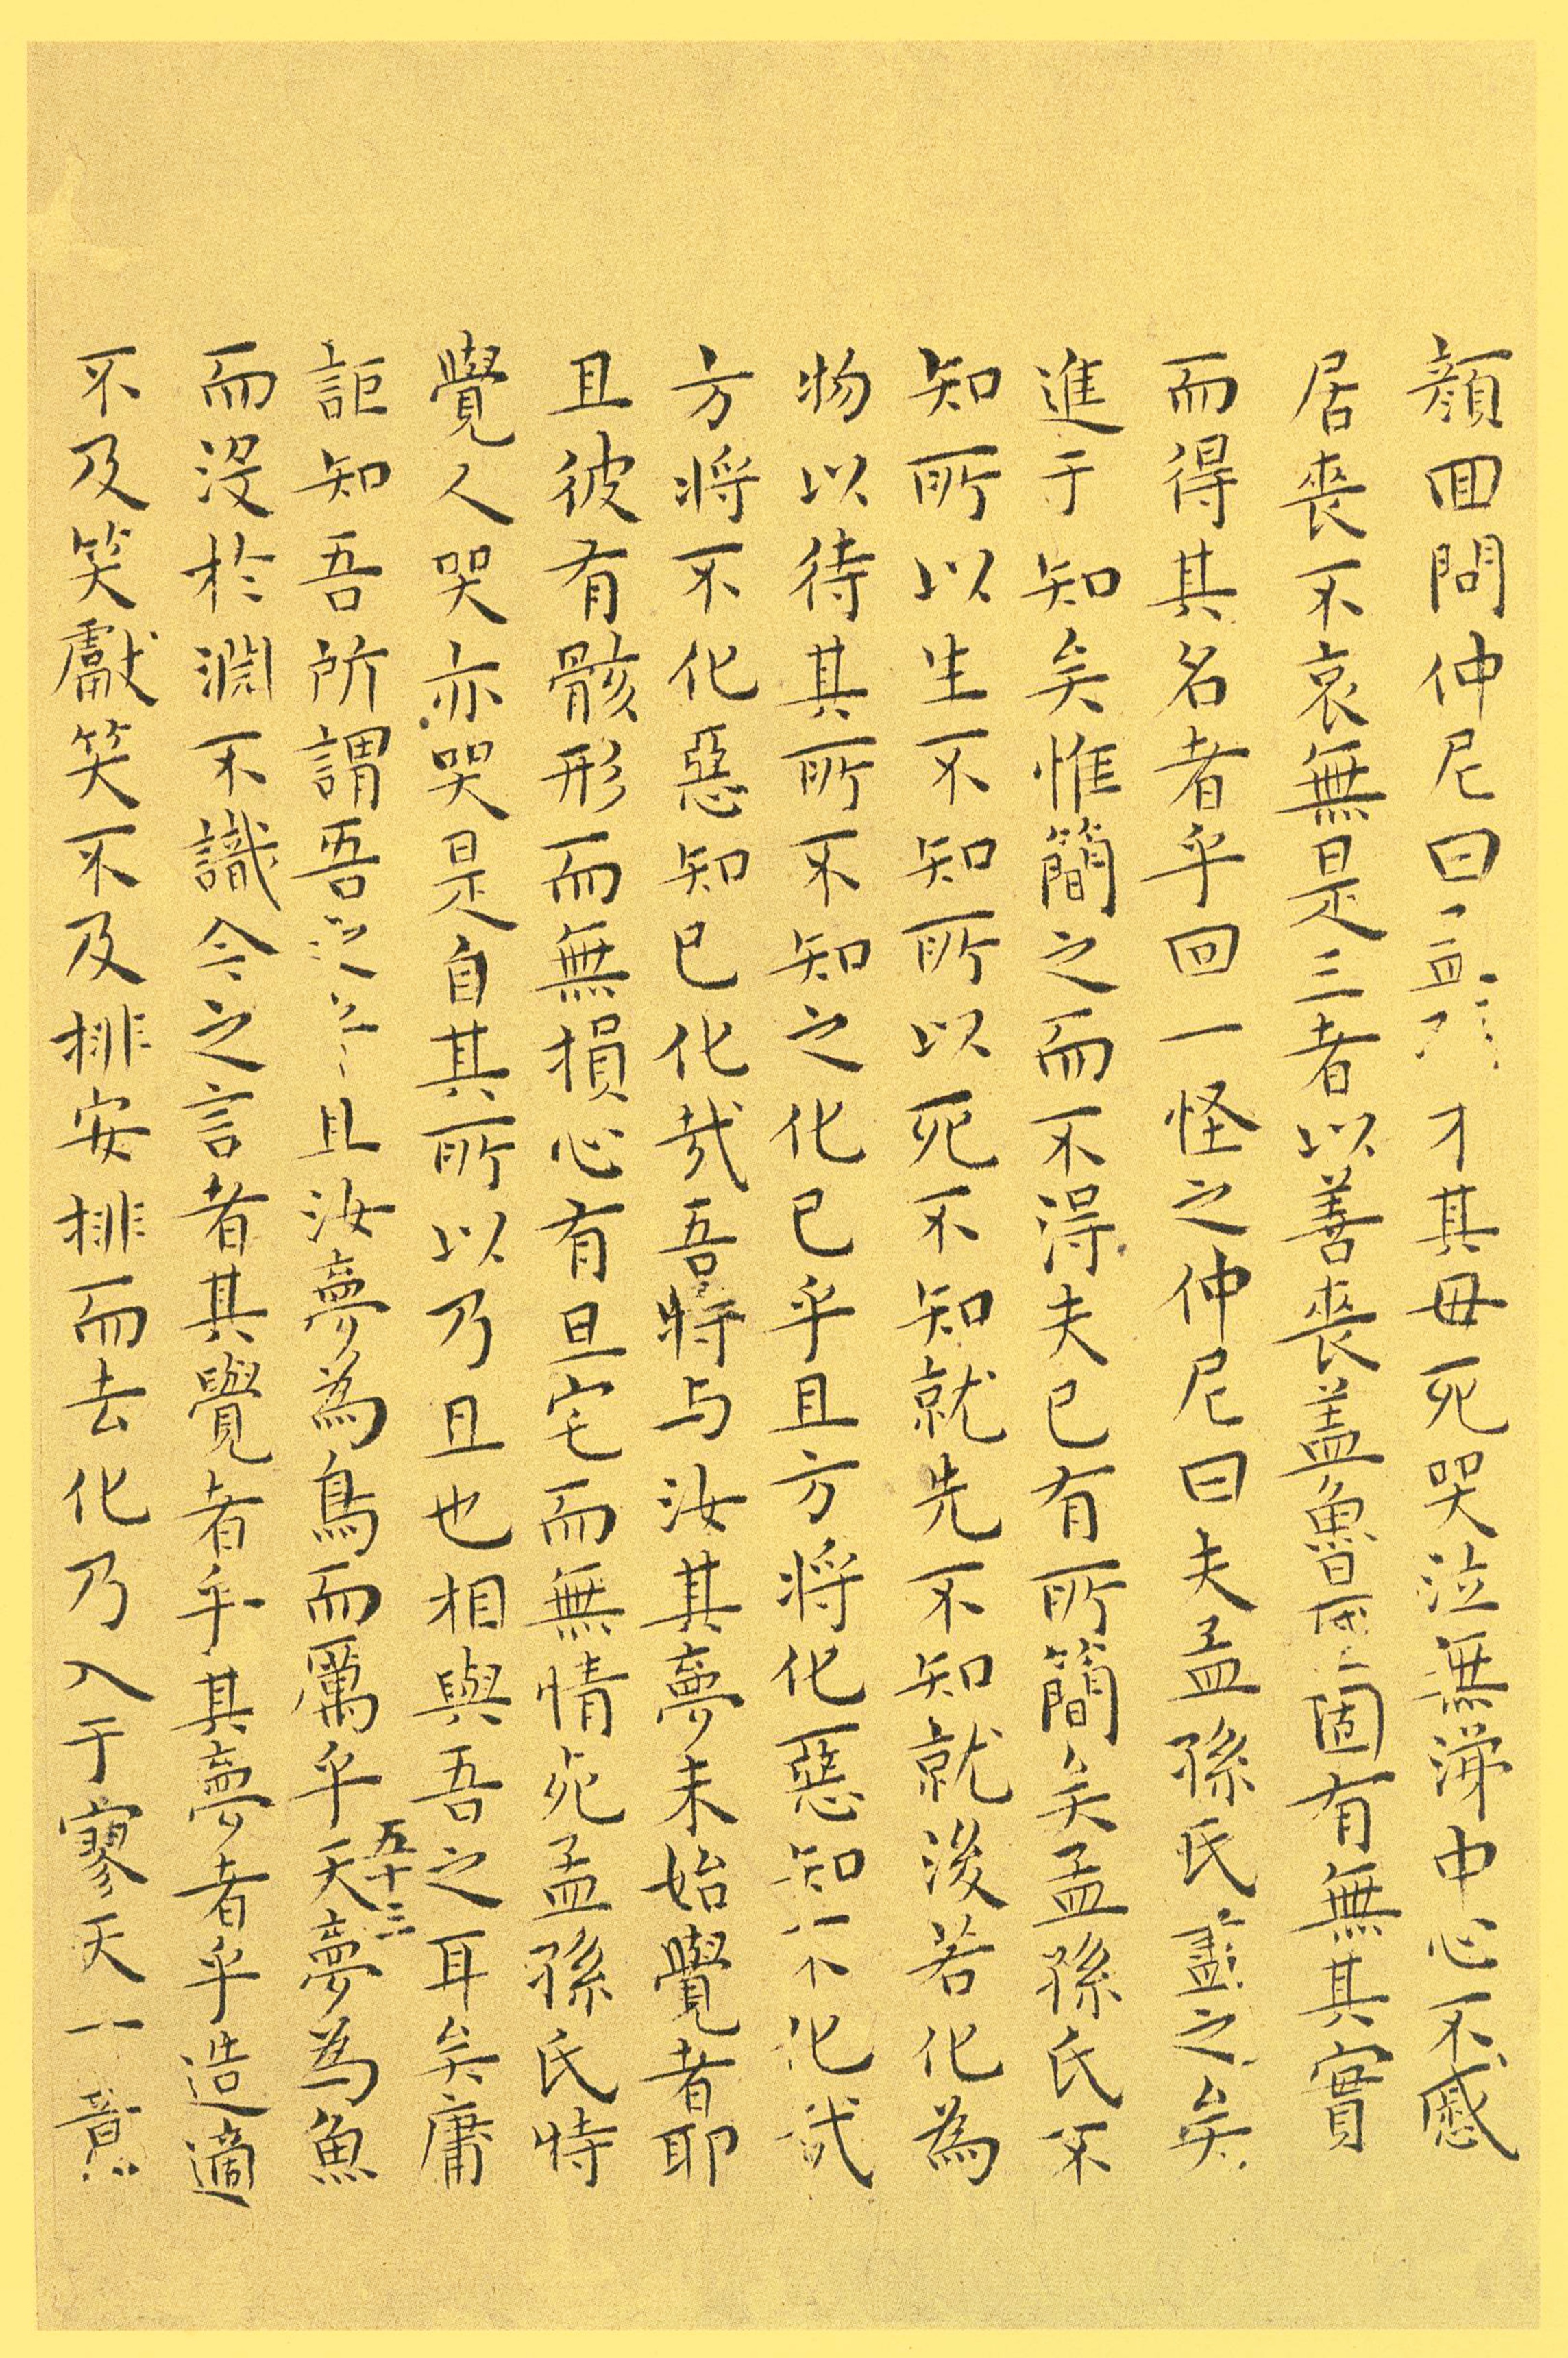 顏回問仲尼曰孟孫才其母死哭泣無涕中心不慼
居喪不哀無是三者以善喪盖魯國固有無其實
而得其名者乎回一怪之仲尼曰夫孟孫氏盡之矣
進于知矣惟簡之而不得夫已有所簡矣孟孫氏不
知所以生不知所以死不知就先不知就後若化為
物以待其所不知之化已乎且方将化惡知不化哉
方将不化惡知已化哉吾特与汝其夢未始覺者耶
且彼有骸形而無損心有旦宅而無情死孟孫氏特
覺人哭亦哭是自其所以乃且也相與吾之耳矣庸
詎知吾所謂吾之乎且汝夢為鳥而厲乎天夢為魚
五十三
而沒於淵不識今之言者其覺者乎其夢者乎造適
不及笑獻笑不及排安排而去化乃入于寥天一